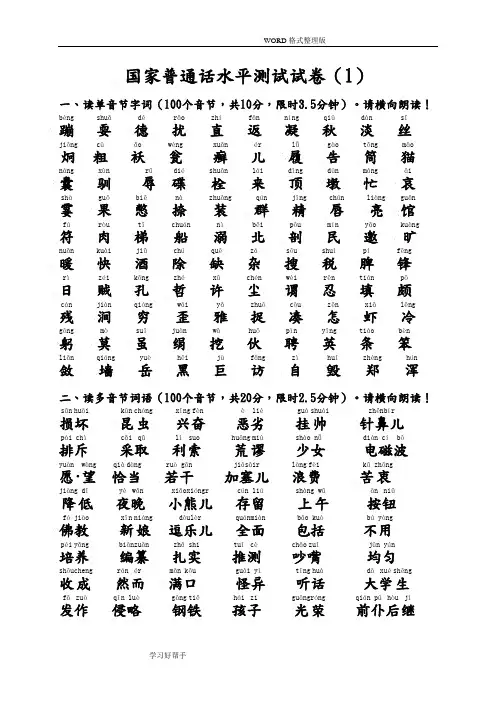 WORD 格式整理版
国家普通话水平测试试卷(1)
一、读单音节字词(100个音节,共10分,限时3.5分钟)。请横向朗读!
bèng shuǎ dé rǎo zhí fǎn níng qiū dàn sī
蹦 耍 德 扰 直 返 凝 秋 淡 丝
jiǒng cū ǎo wèng xuǎn ér lǚ gào tǒng māo
炯 粗 袄 瓮 癣 儿 履 告 筒 猫
náng xùn rǔ dié shuān lái dǐng dūn máng āi
囊 驯 辱 碟 栓 来 顶 墩 忙 哀
shà guǒ biē nà zhuāng qún jīng chún liàng guǎn
霎 果 憋 捺 装 群 精 唇 亮 馆
fú ròu tī chuán nì běi pōu mín yāo kuàng
符 肉 梯 船 溺 北 剖 民 邀 旷
nuǎn kuài jiǔ chú quē zá sōu shuì pí fēng
暖 快 酒 除 缺 杂 搜 税 脾 锋
rì zéi kǒng zhé xǔ chén wèi rěn tián pō
日 贼 孔 哲 许 尘 谓 忍 填 颇
cán jiàn qióng wāi yǎ zhuō còu zěn xiā lěng
残 涧 穷 歪 雅 捉 凑 怎 虾 冷
gōng mò suī juàn wā huǒ pìn yīng tiáo bèn
躬 莫 虽 绢 挖 伙 聘 英 条 笨
liǎn qiáng yuè hēi jù fǎng zì huǐ zhèng hún
敛 墙 岳 黑 巨 访 自 毁 郑 浑
二、读多音节词语(100个音节,共20分,限时2.5分钟)。请横向朗读!
sǔn huài kūn chóng xīng fèn è liè guà shuài zhēnbír
损坏 昆虫 兴奋 恶劣 挂帅 针鼻儿
pái chì cǎi qǔ lì suo huāng miù shào nǚ diàn cí bō
排斥 采取 利索 荒谬 少女 电磁波
yuàn wàng qià dàng ruò gān jiāsāir làng fèi kǔ zhōng
愿·望 恰当 若干 加塞儿 浪费 苦衷
jiàng dī yè wǎn xiǎoxióngr cún liú shàng wǔ àn niǔ
降低 夜晚 小熊儿 存留 上午 按钮
fó jiào xīn niáng dòulèr quánmiàn bāo kuò bù yòng
佛教 新娘 逗乐儿 全面 包括 不用
péi yǎng biānzuǎn zhā shi tuī cè chǎo zuǐ jūn yún
培养 编纂 扎实 推测 吵嘴 均匀
shōucheng rán ér mǎn kǒu guài yì tīng huà dà xué shēng
收成 然而 满口 怪异 听话 大学生
fā zuò qīn lüè gāng tiě hái zi guāngróng qián pū hòu jì
发作 侵略 钢铁 孩子 光荣 前仆后继
学习好帮手